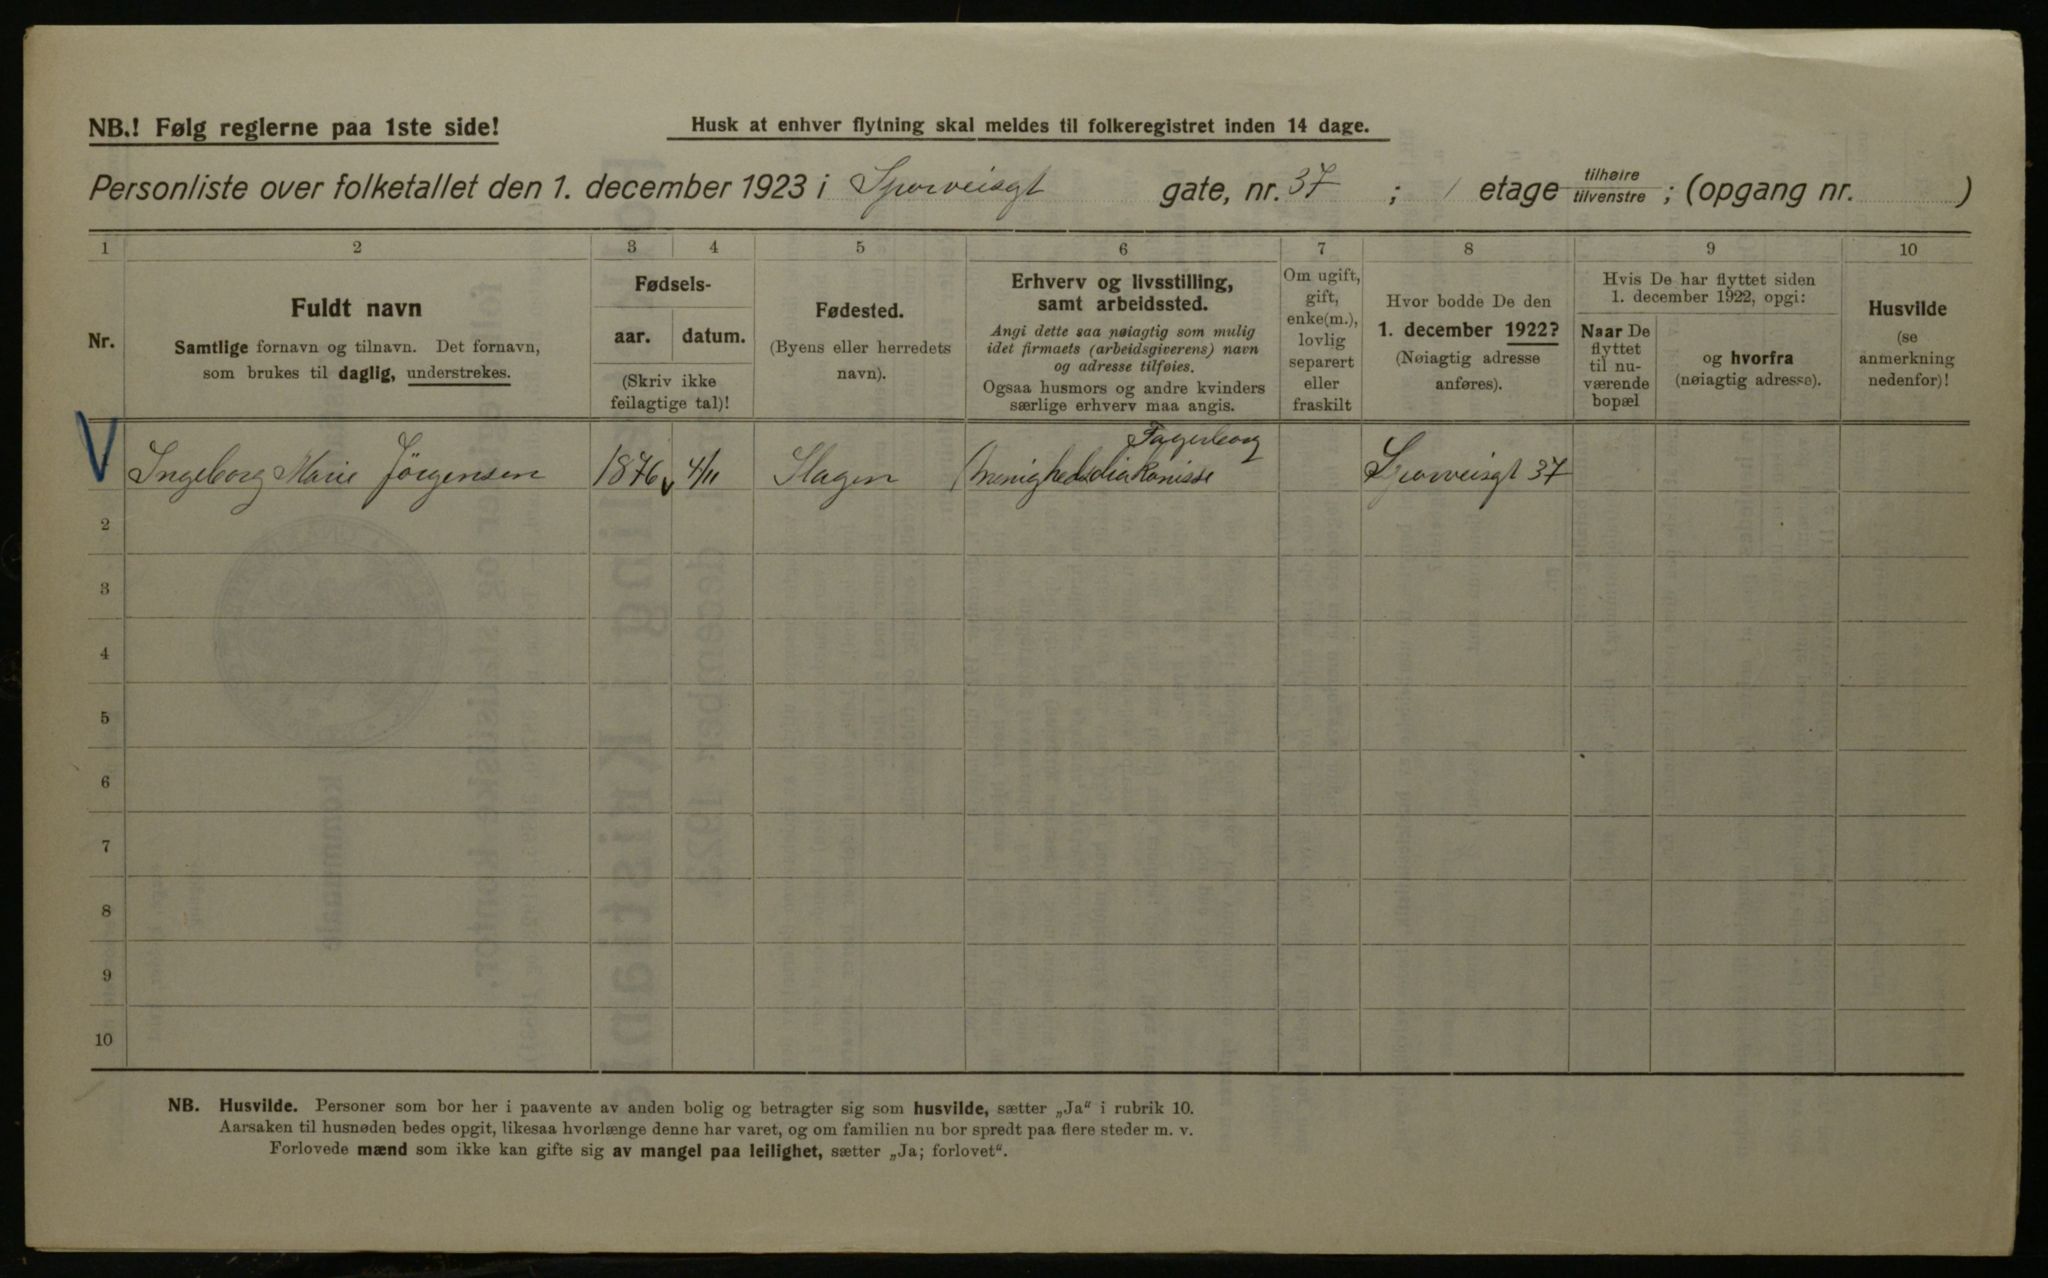 NB.! Følg reglerne paa 1ste side!
Husk at enhver flytning skal meldes til folkeregistret inden 14 dage.
Personliste over folketallet den 1. december 1923 i Sporveisgt gate, nr. 37 ; 1 etage tilhøire tilvenstre ; (opgang nr. )
1 2 3 4 5 6 7 8 9 10
Nr.
Fuldt navn
Samtlige fornavn og tilnavn. Det fornavn,
som brukes til daglig, understrekes.
Fødsels-
aar. datum.
(Skriv ikke
feilagtige tal)!
Fødested.
(Byens eller herredets
navn).
Erhverv og livsstilling,
samt arbeidssted.
Angi dette saa nøiagtig som mulig
idet firmaets (arbeidsgiverens) navn
og adresse tilføies.
Ogsaa husmors og andre kvinders
særlige erhverv maa angis.
Om ugift,
gift,
enke(m.),
lovlig
separert
eller
fraskilt
Hvor bodde De den
1. december 1922?
(Nøiagtig adresse
anføres).
Hvis De har flyttet siden
1. december 1922, opgi:
Naar De
flyttet
til nu-
værende
bopæl
og hvorfra
(nøiagtig adresse).
Husvilde
(se
anmerkning
nedenfor)!
Fagerborg
V Ingeborg Marie Jörgensen 1876 v 4/11 Slagen Menighedsdiakonisse Sporveisgt 37
2
3
4
5
6
7
8
9
10
NB. Husvilde. Personer som bor her i paavente av anden bolig og betragter sig som husvilde, sætter „Ja“ i rubrik 10.
Aarsaken til husnøden bedes opgit, likesaa hvorlænge denne har varet, og om familien nu bor spredt paa flere steder m. v.
Forlovede mænd som ikke kan gifte sig av mangel paa leilighet, sætter „Ja; forlovet“.